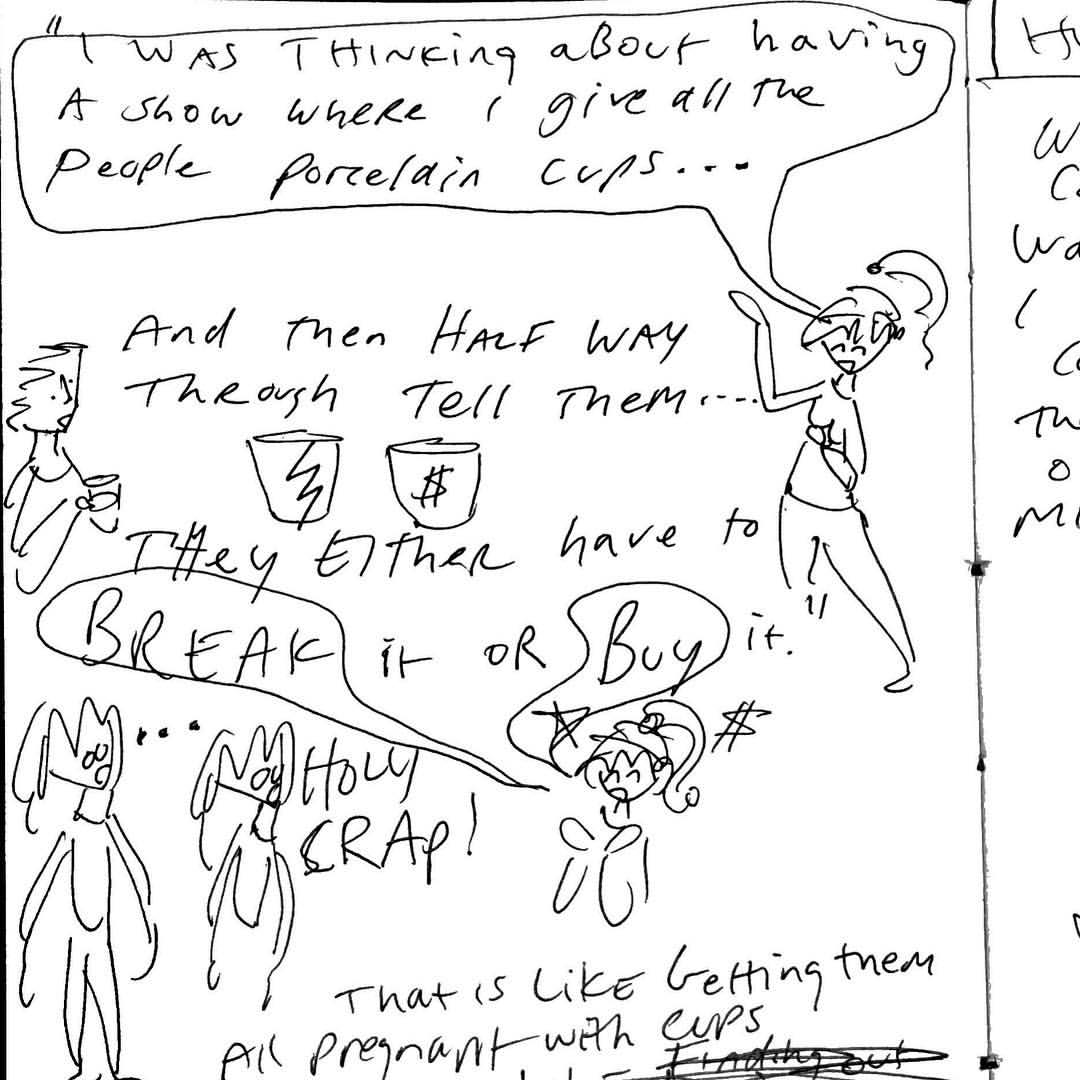 "I WAS THINKing aBout having
A Show WHERE I give all The
People Porcelain Cups...
And then HALF WAY
THROugh Tell THEM....
$
THey EITHER have to
BREAK it OR Buy it."
$
...
HOLY
CRAP!
THat iS LiKE Getting them
All pregnant with cups